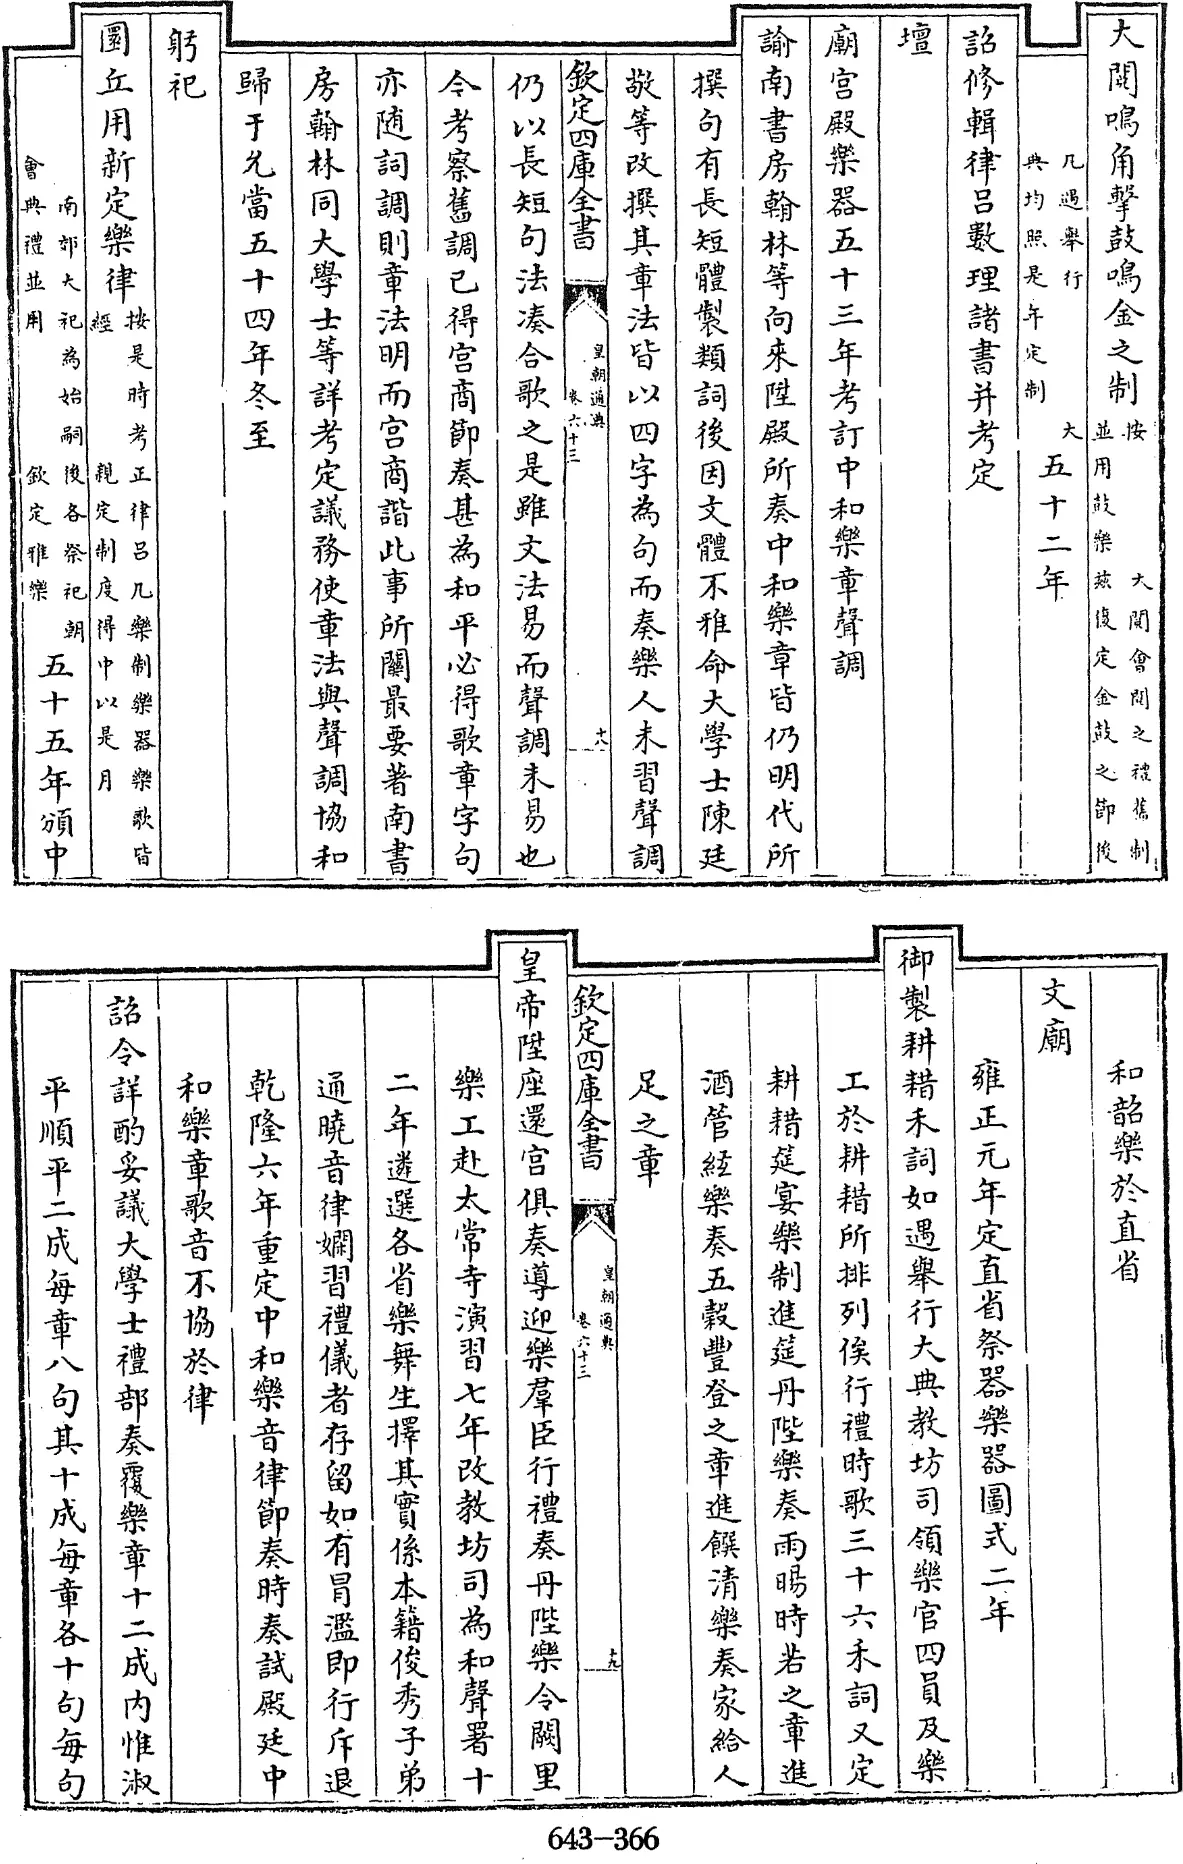 大閱鳴角擊鼓鳴金之制按大閱會閱之禮舊制
並用鼓樂茲復定金鼓之節後
凡遇舉行大
典均照是年定制
五十二年
詔修輯律呂數理諸書并考定
壇
廟宮殿樂器五十三年考訂中和樂章聲調
諭南書房翰林等向來陞殿所奏中和樂章皆仍明代所
撰句有長短體製類詞後因文體不雅命大學士陳廷
敬等改撰其章法皆以四字為句而奏樂人未習聲調
欽定四庫全書
皇朝通典
卷六十三
十八
仍以長短句法凑合歌之是雖文法易而聲調未易也
令考察舊調已得宮商節奏甚為和平必得歌章字句
亦随詞調則章法明而宮商諧此事所關最要著南書
房翰林同大學士等詳考定議務使章法與聲調協和
歸于允當五十四年冬至
躬祀
圜丘用新定樂律按是時考正律呂凡樂制樂器樂歌皆
經親定制度得中以是月
南郊大祀為始嗣後各祭祀朝
會典禮並用欽定雅樂
五十五年頒中
和韶樂於直省
文廟
雍正元年定直省祭器樂器圖式二年
御製耕耤禾詞如遇舉行大典教坊司領樂官四員及樂
工於耕耤所排列俟行禮時歌三十六禾詞又定
耕耤筵宴樂制進筵丹陛樂奏雨暘時若之章進
酒管絃樂奏五穀豐登之章進饌清樂奏家給人
足之章
欽定四庫全書
皇朝通典
卷六十三
十九
皇帝陞座還宮俱奏導迎樂羣臣行禮奏丹陛樂令闕里
樂工赴太常寺演習七年改教坊司為和聲署十
二年遴選各省樂舞生擇其實係本籍俊秀子弟
通曉音律嫻習禮儀者存留如有冒濫即行斥退
乾隆六年重定中和樂音律節奏時奏試殿廷中
和樂章歌音不協於律
詔令詳酌妥議大學士禮部奏覆樂章十二成内惟淑
平順平二成每章八句其十成每章各十句每句
643-366